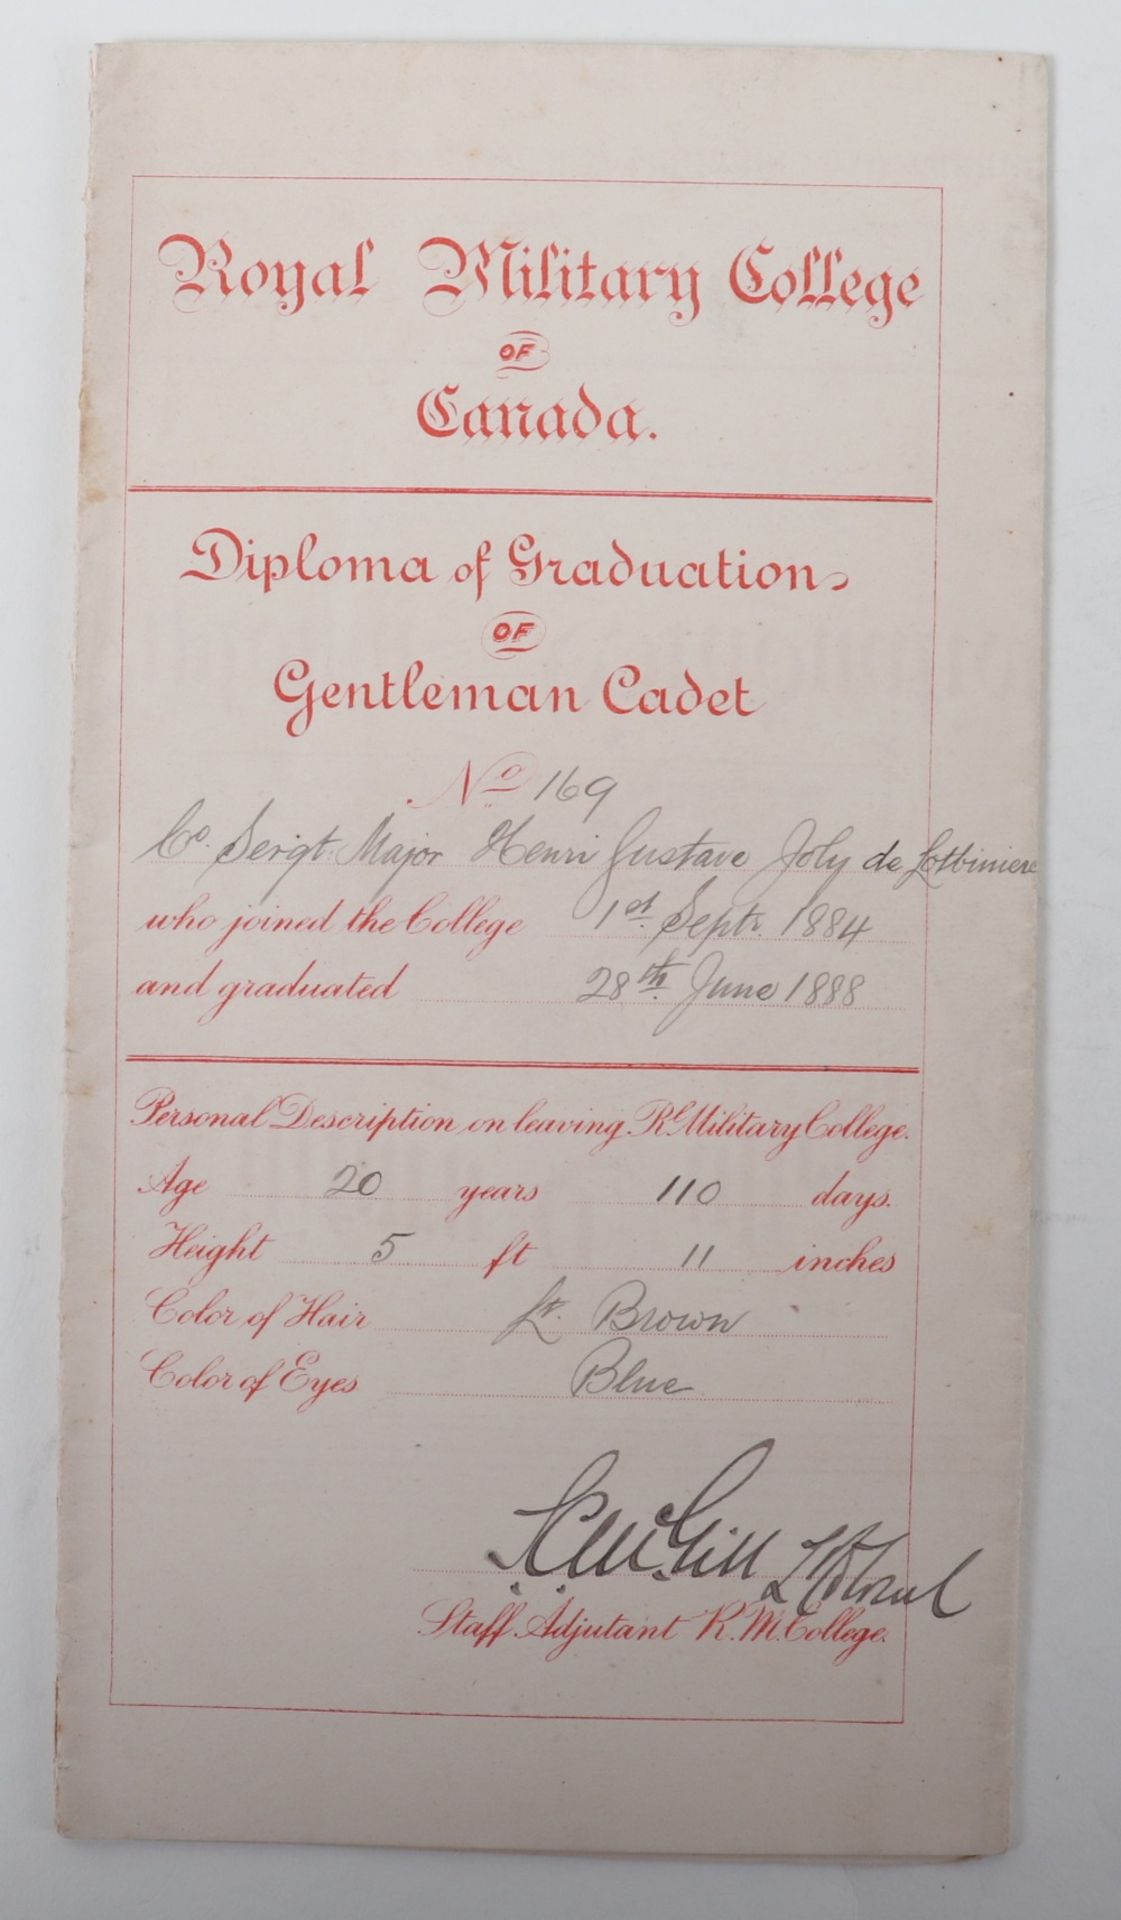 Royal Military College
OF
Canada.
Diploma of Graduation
OF
Gentleman Cadet
No 169
Co. Sergt. Major Henri Gustave Joly de Lotbiniere
who joined the College 1st. Septr. 1884
and graduated 28th. June 1888
Personal Description on leaving Rl Military College.
Age 20 years 110 days.
Height 5 ft 11 inches
Color of Hair Lt. Brown
Color of Eyes Blue
McGill Lt Colonel
Staff Adjutant R. M. College.